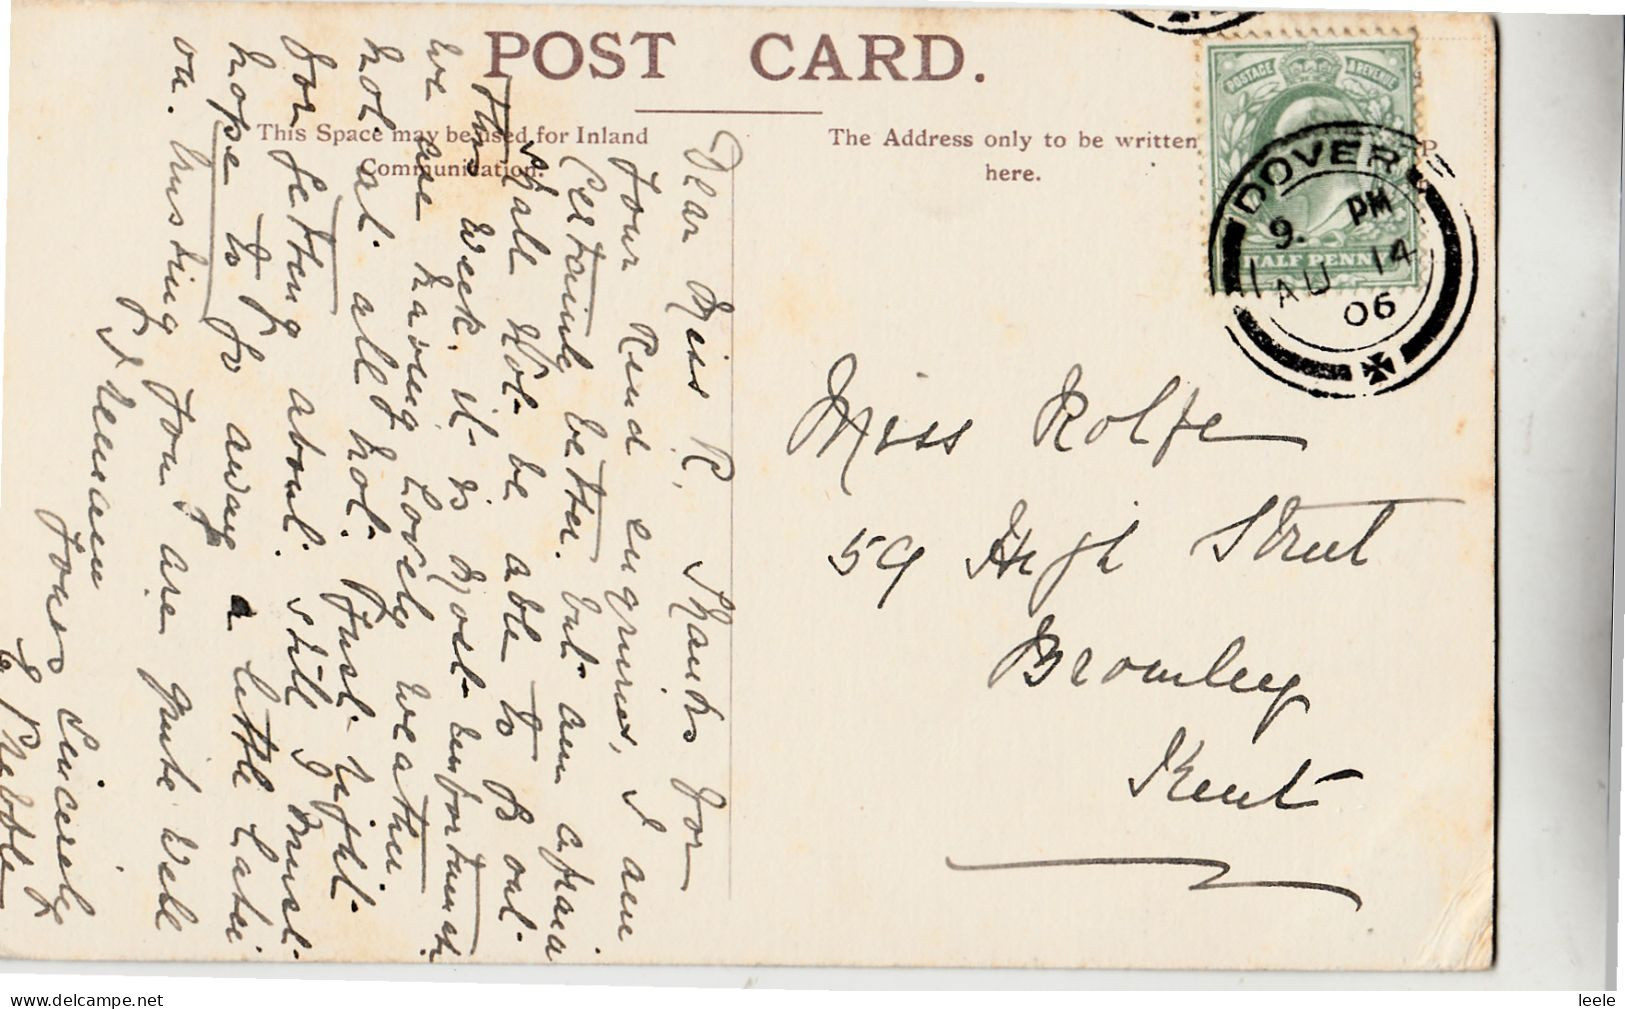 POST CARD.
This Space may be used for Inland
Communication.
The Address only to be written
here.
POSTAGE & REVENUE
HALF PENNY
DOVER
9. PM
AU 14
06
Miss Rolfe
59 High Street
Bromley
Kent
Dear Miss R. Thanks for
your kind enquiries, I am
Certainly better. but am afraid
shall not be able to B out
this week. it is most unfortunate
we are having lovely weather
not at all hot. Just right
for getting about. still I must
hope to go away a little later
on. trusting you are quite well
I remain
Yours Sincerely
leele